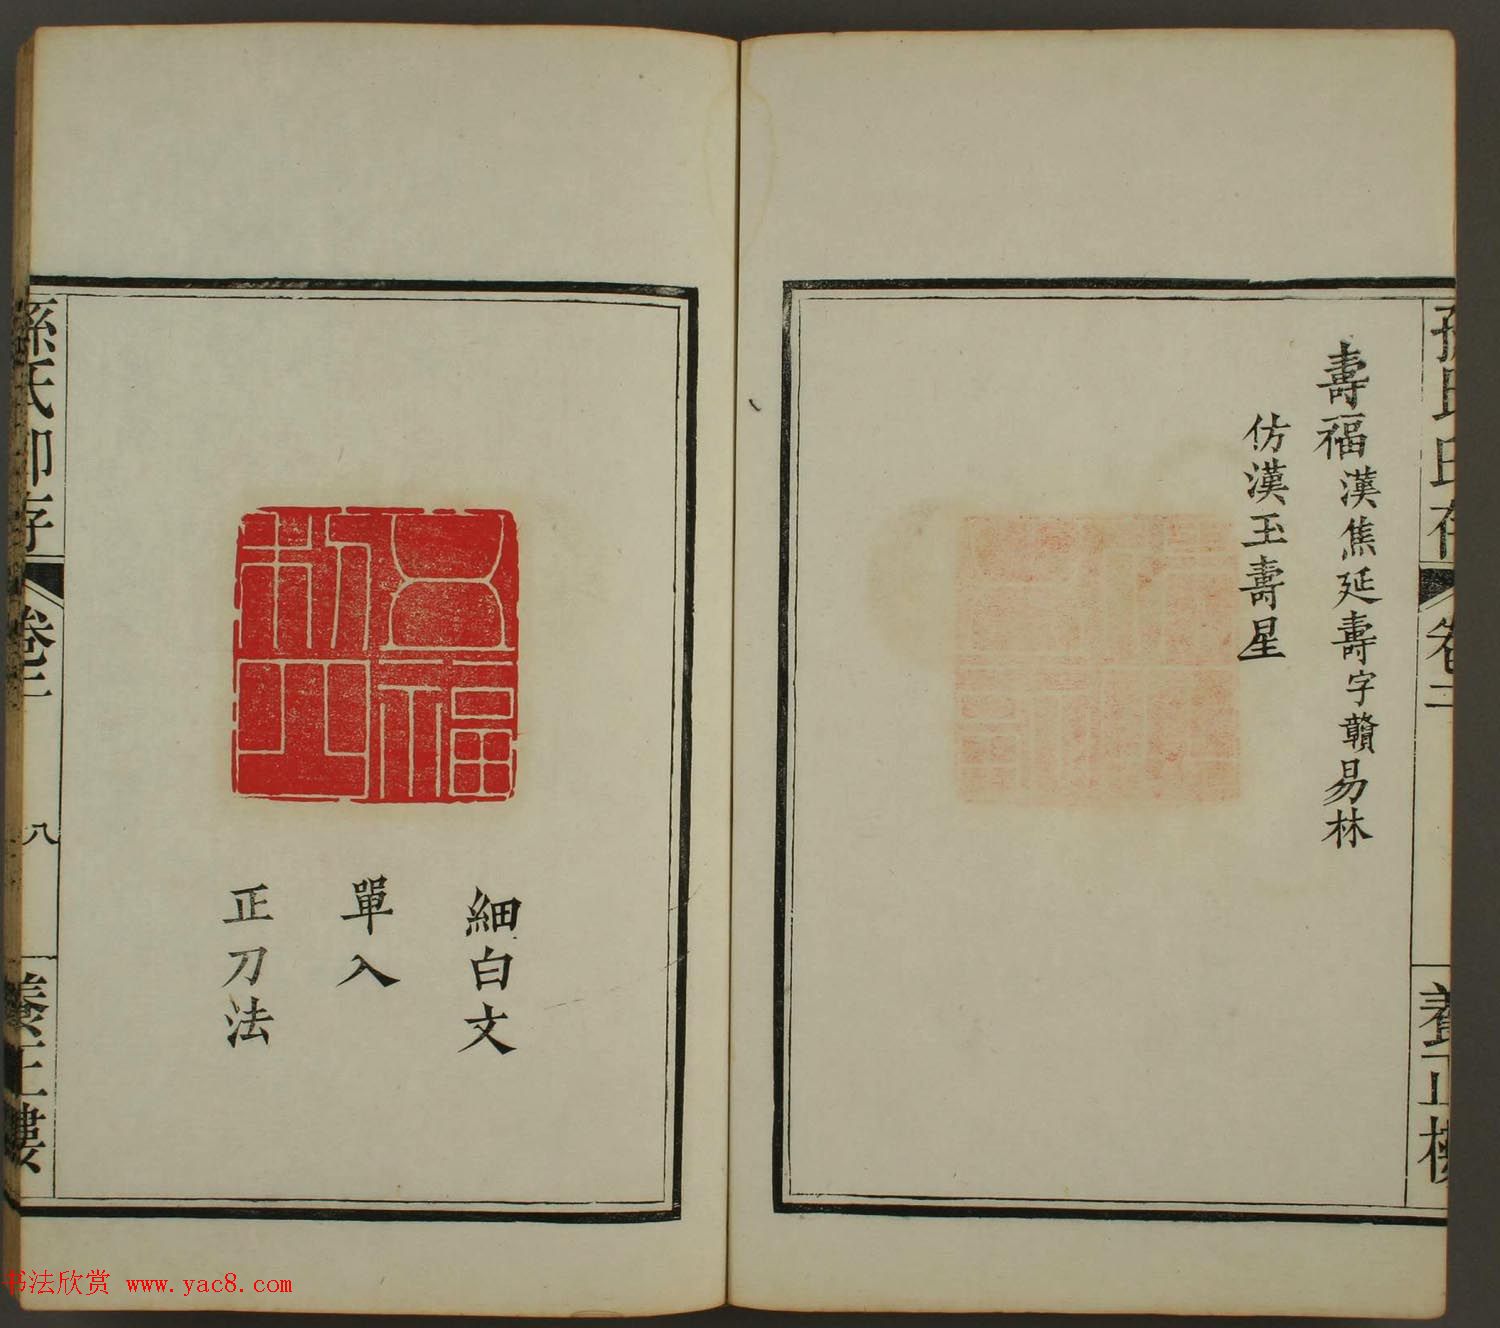 孫氏印存
卷二
養正樓
壽福漢焦延壽字贛易林
仿漢玉壽星
細白文
單入
正刀法
孫氏印存
卷二
八
養正樓
书法欣赏 www.yac8.com